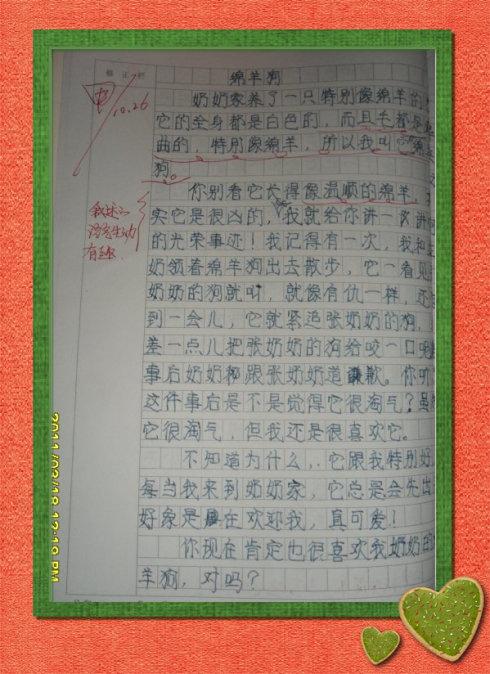 修正栏
绵羊狗
10.26
奶奶家养了一只特别像绵羊的
它的全身都是白色的，而且毛都是
曲的，特别像绵羊，所以我叫它绵
狗。
你别看它长得像温顺的绵羊，
实它是很凶的，我就给你讲一次讲
的光荣事迹！我记得有一次，我和
奶领着绵羊狗出去散步，它一看见
奶奶的狗就叫，就像有仇一样，还
到一会儿，它就紧追张奶奶的狗，
差一点儿把张奶奶的狗给咬一口
事后奶奶和跟张奶奶道歉。你听
这件事后是不是觉得它很淘气？虽
它很淘气，但我还是很喜欢它。
不知道为什么，它跟我特别好，
每当我来到奶奶家，它总是会先出
好象是在欢迎我，真可爱！
你现在肯定也很喜欢我奶奶的
羊狗，对吗？
叙述
语言生动
有趣
2011/02/18 12:19 PM